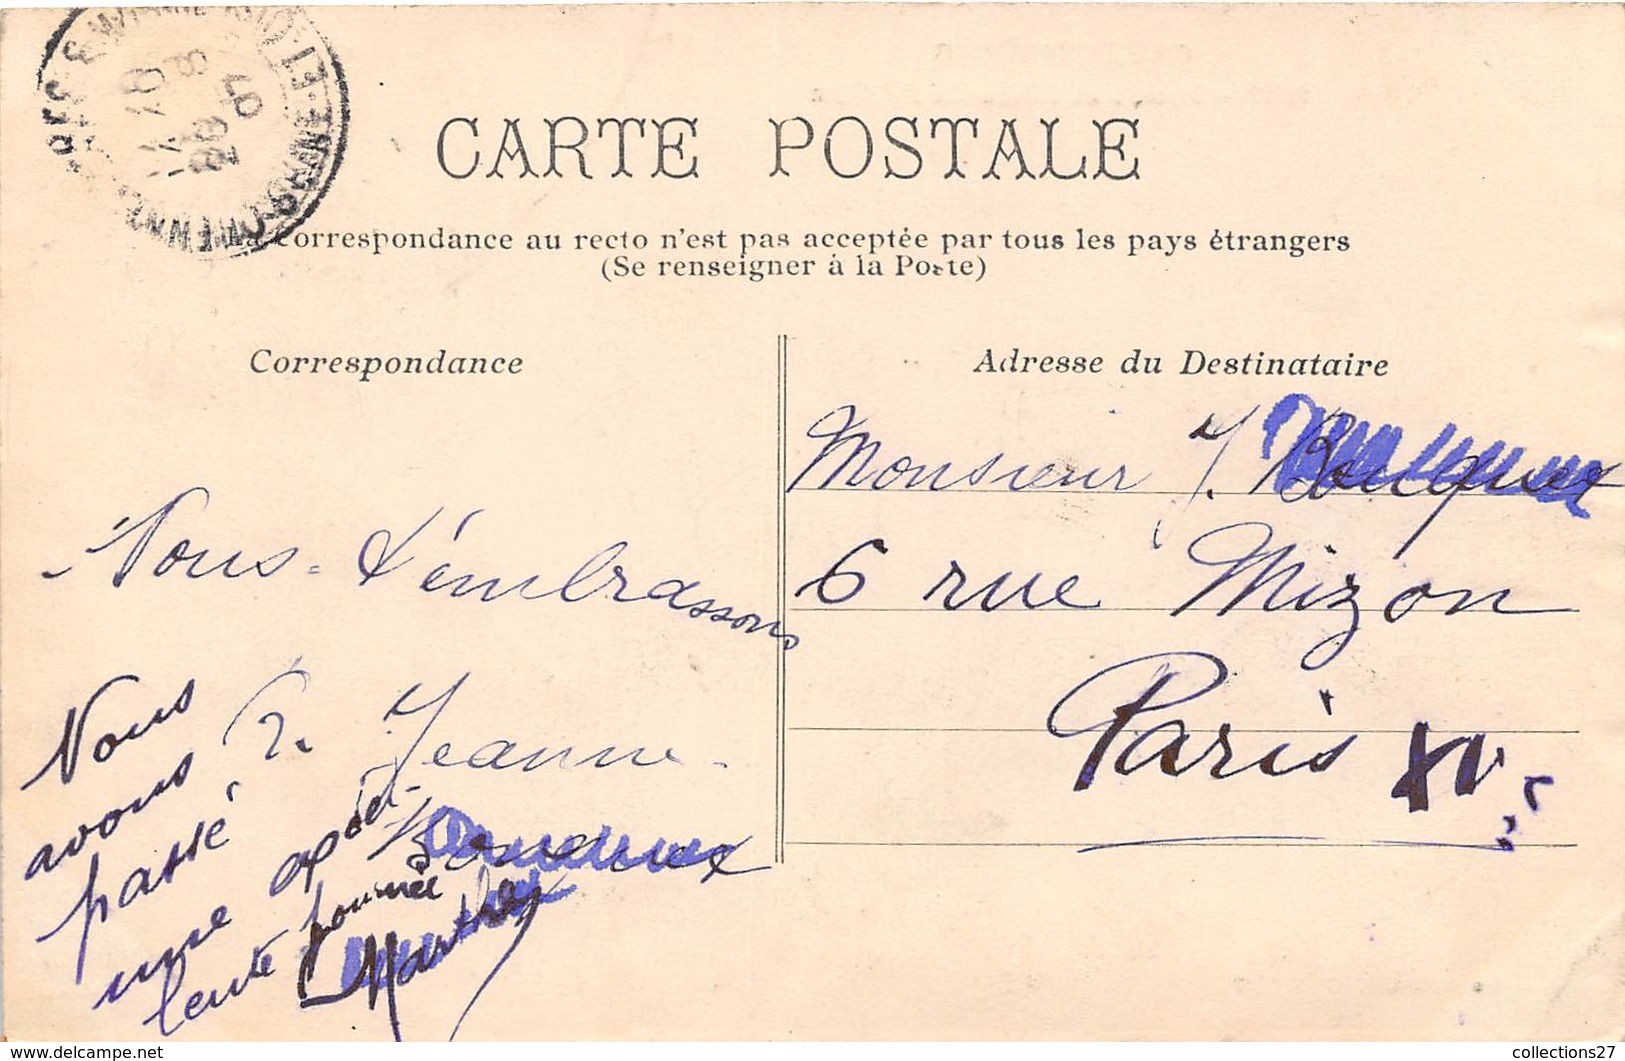 CARTE POSTALE
La Correspondance au recto n'est pas acceptée par tous les pays étrangers
(Se renseigner à la Poste)
Correspondance
Nous t'embrassons
Jeanne
Nous
avons
passé
une
journée
Marthe
Adresse du Destinataire
Monsieur J.
6 rue Mizon
Paris XV
www.delcampe.net
collections27